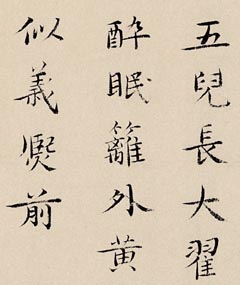 五兒長大翟
醉眠籬外黃
似義熙前